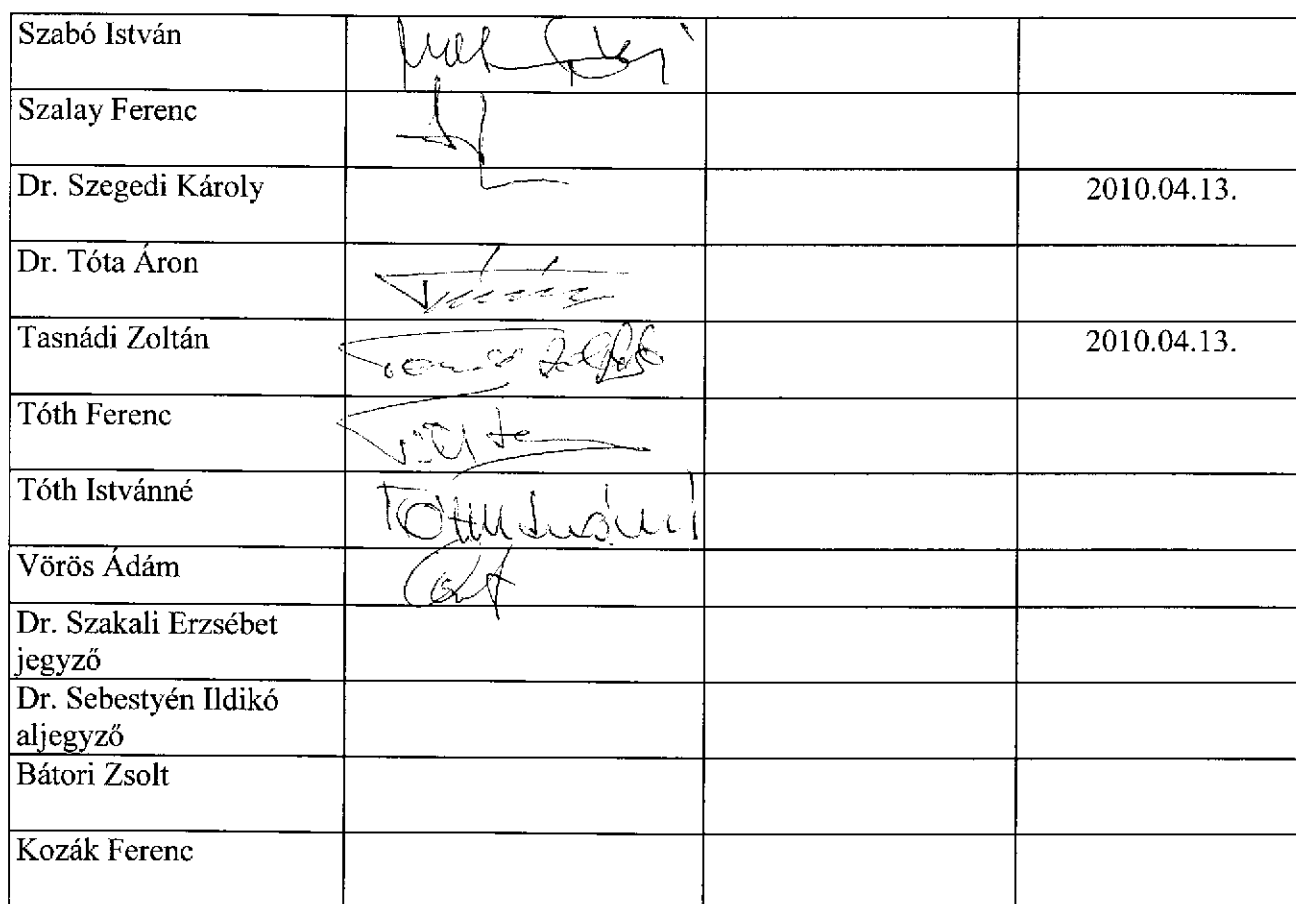 Szabó István
Szalay Ferenc
Dr. Szegedi Károly 2010.04.13.
Dr. Tóta Áron
Tasnádi Zoltán 2010.04.13.
Tóth Ferenc
Tóth Istvánné
Vörös Ádám
Dr. Szakali Erzsébet
jegyző
Dr. Sebestyén Ildikó
aljegyző
Bátori Zsolt
Kozák Ferenc